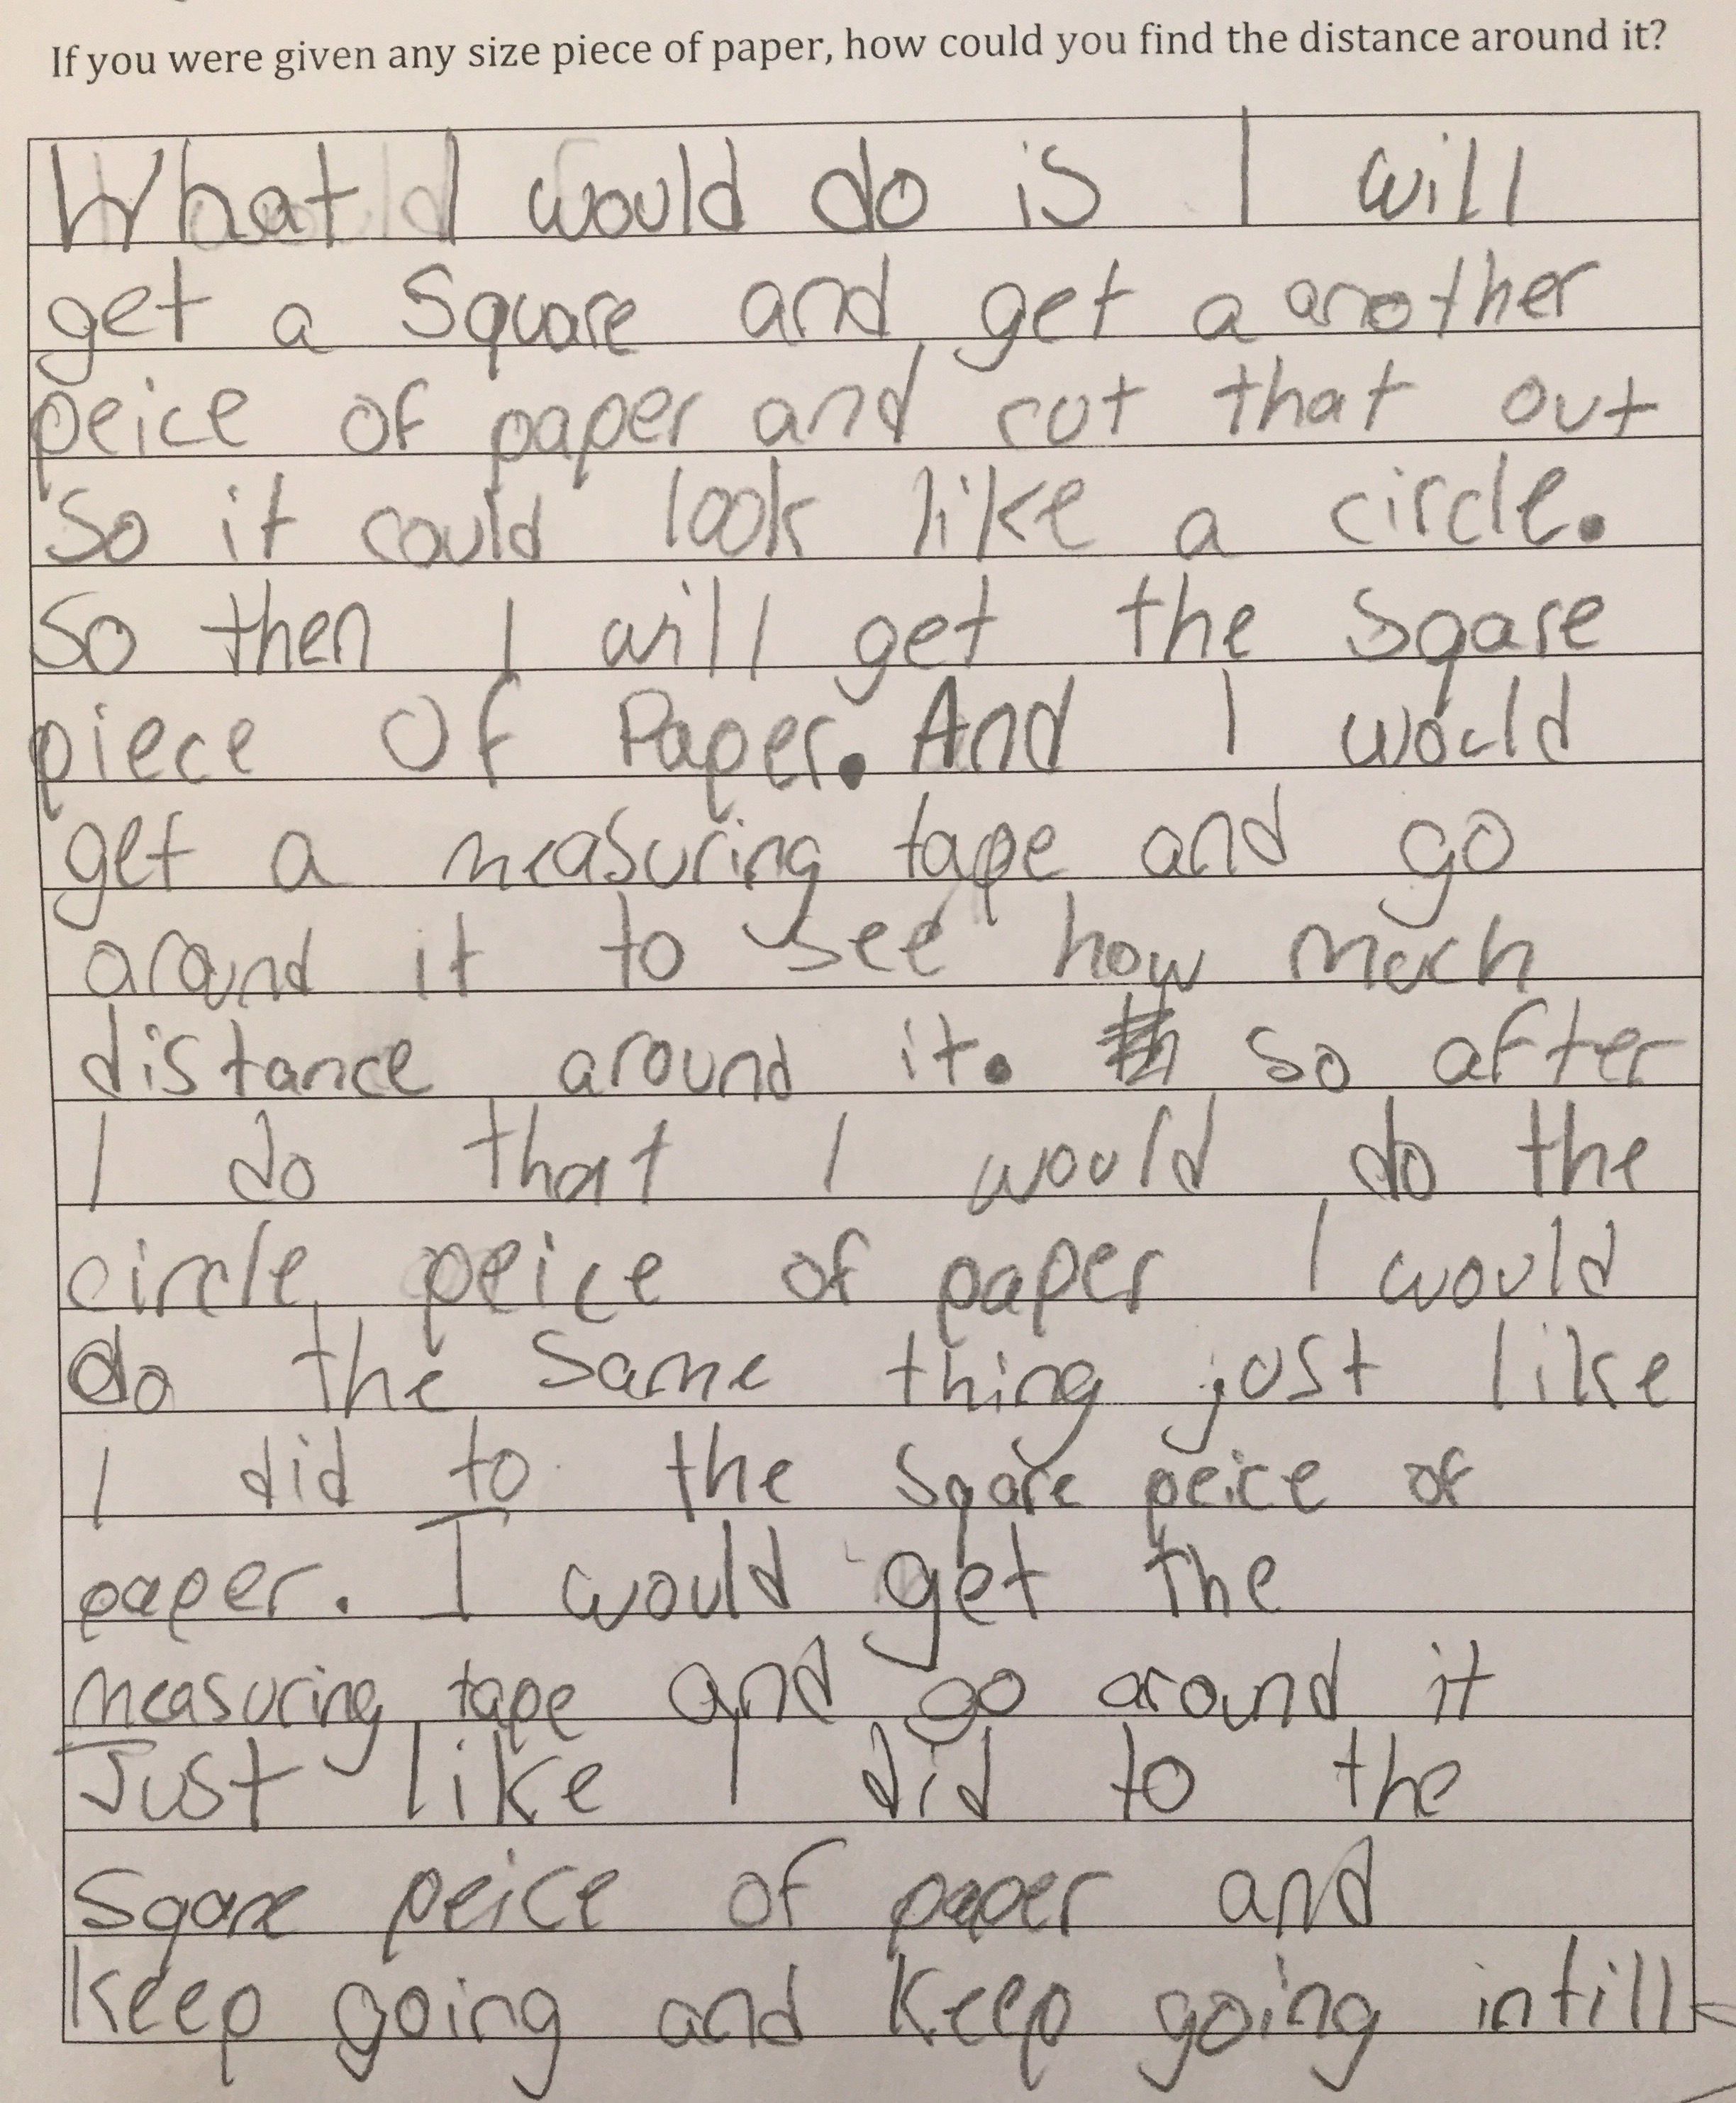 If you were given any size piece of paper, how could you find the distance around it?
What I would do is I will
get a Square and get a another
peice of paper and cut that out
So it could look like a circle.
So then I will get the Sqare
piece Of Paper. And I would
get a measuring tape and go
around it to see how much
distance around it. so after
I do that I would do the
circle peice of paper I would
do the Same thing just like
I did to the Sqare peice of
paper. I would get the
measuring tape and go around it
Just like I did to the
Sqare peice of paper and
keep going and Keep going intill